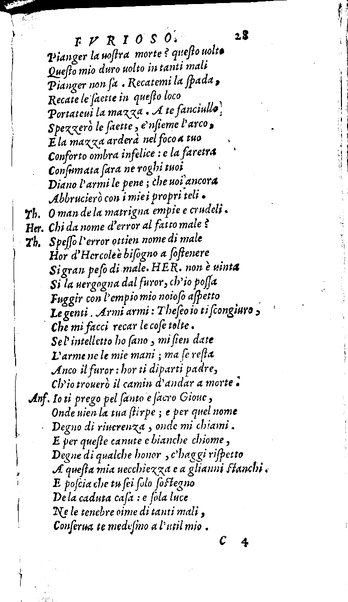 FVRIOSO. 28
Pianger la uostra morte? questo uolto
Questo mio duro uolto in tanti mali
Pianger non sa. Recatemi la spada,
Recate le saette in questo loco
Portateui la mazza. A te fanciullo
Spezzerò le saette, e'nsieme l'arco,
E la mazza arderà nel foco a tuo
Conforto ombra infelice: e la faretra
Consumata sara ne roghi tuoi
Diano l'armi le pene; che uoi ancora
Abbrucierò con i miei propri teli.
Th. O man de la matrigna empie e crudeli.
Her. Chi da nome d'error al fatto male?
Th. Spesso l'error ottien nome di male
Hor d'Hercole è bisogno a sostenere
Si gran peso di male. HER. non è uinta
Si la uergogna dal furor, ch'io possa
Fuggir con l'empio mio noioso aspetto
Le genti. Armi armi: Theseo io ti scongiuro,
Che mi facci recar le cose tolte.
Se l'intelletto ho sano, mi sien date
L'arme ne le mie mani; ma se resta
Anco il furor: hor ti diparti padre,
Ch'io trouerò il camin d'andar a morte.
Anf. Io ti prego pel santo e sacro Gioue,
Onde uien la tua stirpe; e per quel nome
Degno di riuerenza, onde mi chiami.
E per queste canute e bianche chiome,
Degne di qualche honor, c'haggi rispetto
A questa mia uecchiezza e a gli anni stanchi.
E poscia che tu sei solo sostegno
De la caduta casa: e sola luce
Ne le tenebre oime di tanti mali,
Conserua te medesino a l'util mio.
C 4